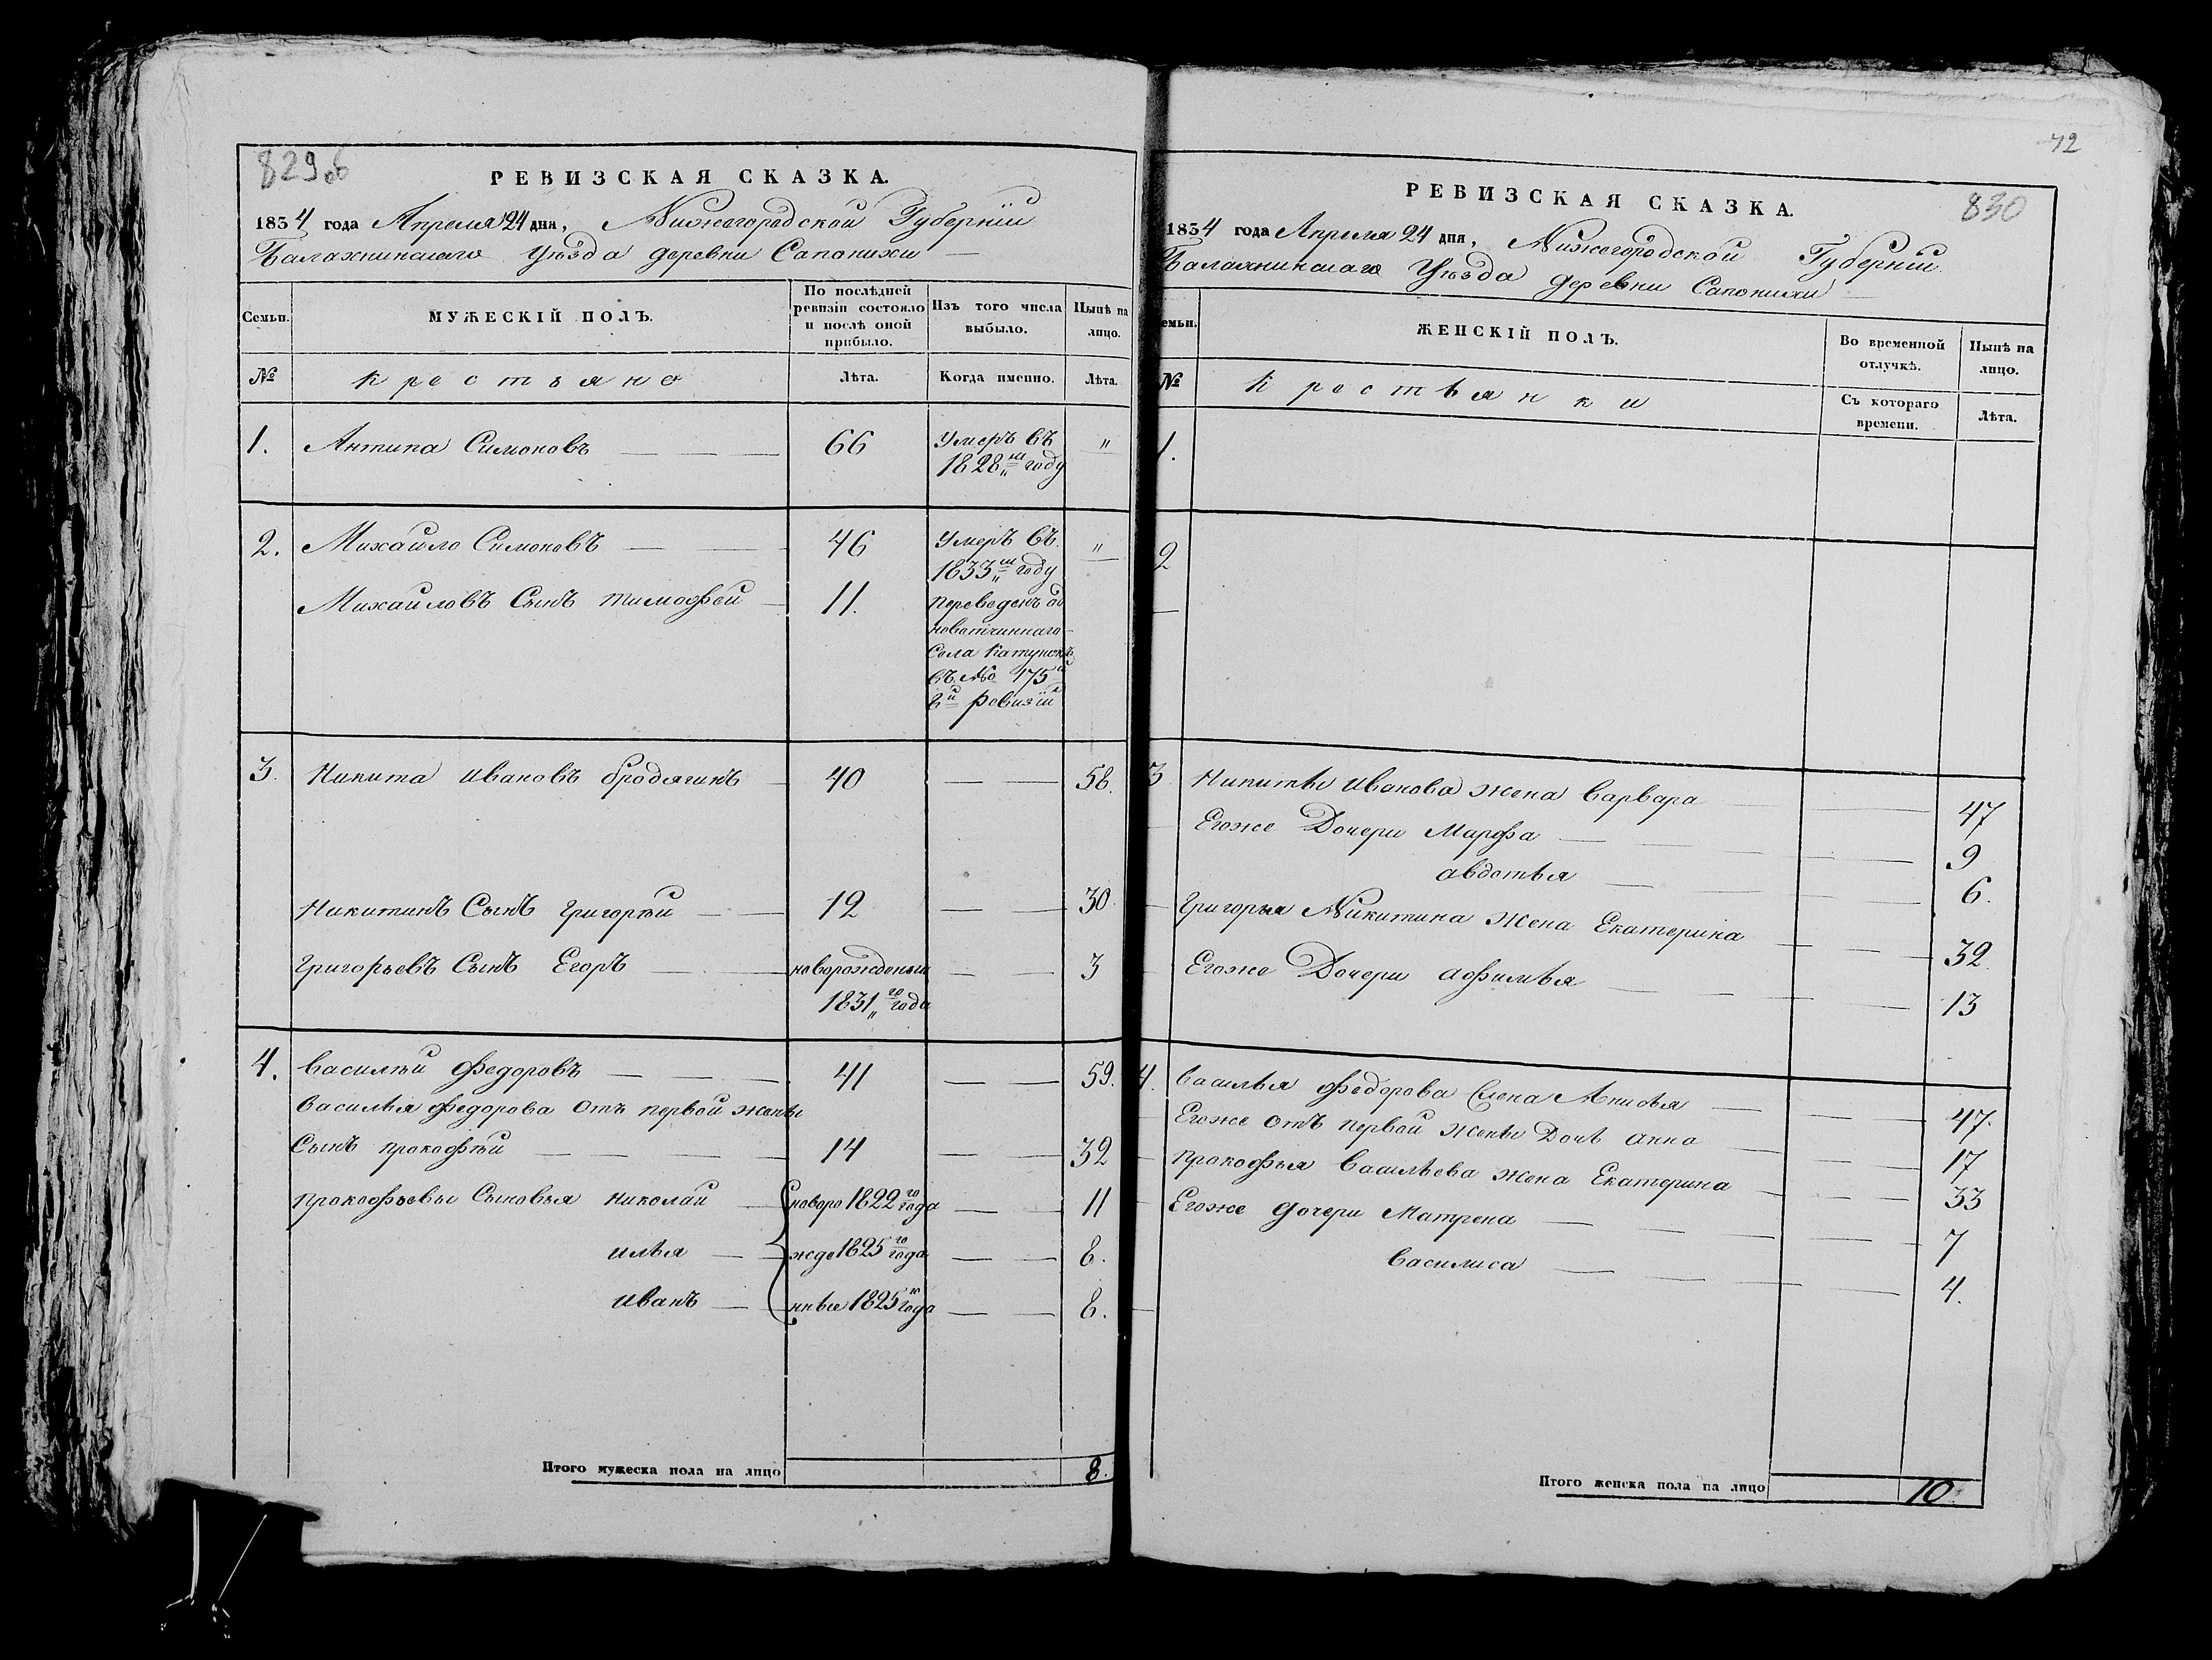 829об
РЕВИЗСКАЯ СКАЗКА.
1834 года Апреля 24 дня, Нижегородской Губерніи
Балахнинскаго Уѣзда деревни Сапонихи
Семьи. МУЖЕСКІЙ ПОЛЪ. По послѣдней ревизіи состояло и послѣ оной прибыло. Изъ того числа выбыло. Нынѣ на лицо.
№ Крестьяне Лѣта. Когда именно. Лѣта.
1. Антипа Симоновъ 66 Умеръ въ "
1828м году
2. Михайло Симоновъ 46 Умеръ въ "
1833м году
Михайловъ Сынъ тимофей 11. переведенъ од
новотчиннаго
села Катунокъ
въ № 175й
8й ревизіи
3. Никита ивановъ бродягинъ 40 58.
Никитинъ Сынъ григорѣй 12 30.
григорьевъ Сынъ Егоръ новорожденный 3
1831го года
4. василѣй федоровъ 41 59.
василья федорова отъ первой жены
Сынъ прокофѣй 14 32
прокофьевы Сыновья николай новоро 1822го года 11
илья жде 1825го года 8.
иванъ нные 1825го года 8.
Итого мужеска пола на лицо 8.
72
830
РЕВИЗСКАЯ СКАЗКА.
1834 года Апреля 24 дня, Нижегородской Губерніи
Балахнинскаго Уѣзда деревни Сапонихи
емьи. ЖЕНСКІЙ ПОЛЪ. Во временной отлучкѣ. Нынѣ на лицо.
№ Крестьянки Съ котораго времени. Лѣта.
1.
2
3 Никиты иванова жена варвара 47
Егоже Дочери Марфа 9
авдотья 6.
григорья Никитина жена Екатерина 32
Егоже Дочери афимья 13
4. василья федорова Анисья 47.
Егоже отъ первой жены Дочь анна 17
прокофья васильева жена Екатерина 33
Егоже дочери Матрена 7
василиса 4.
Итого женска пола на лицо 10.